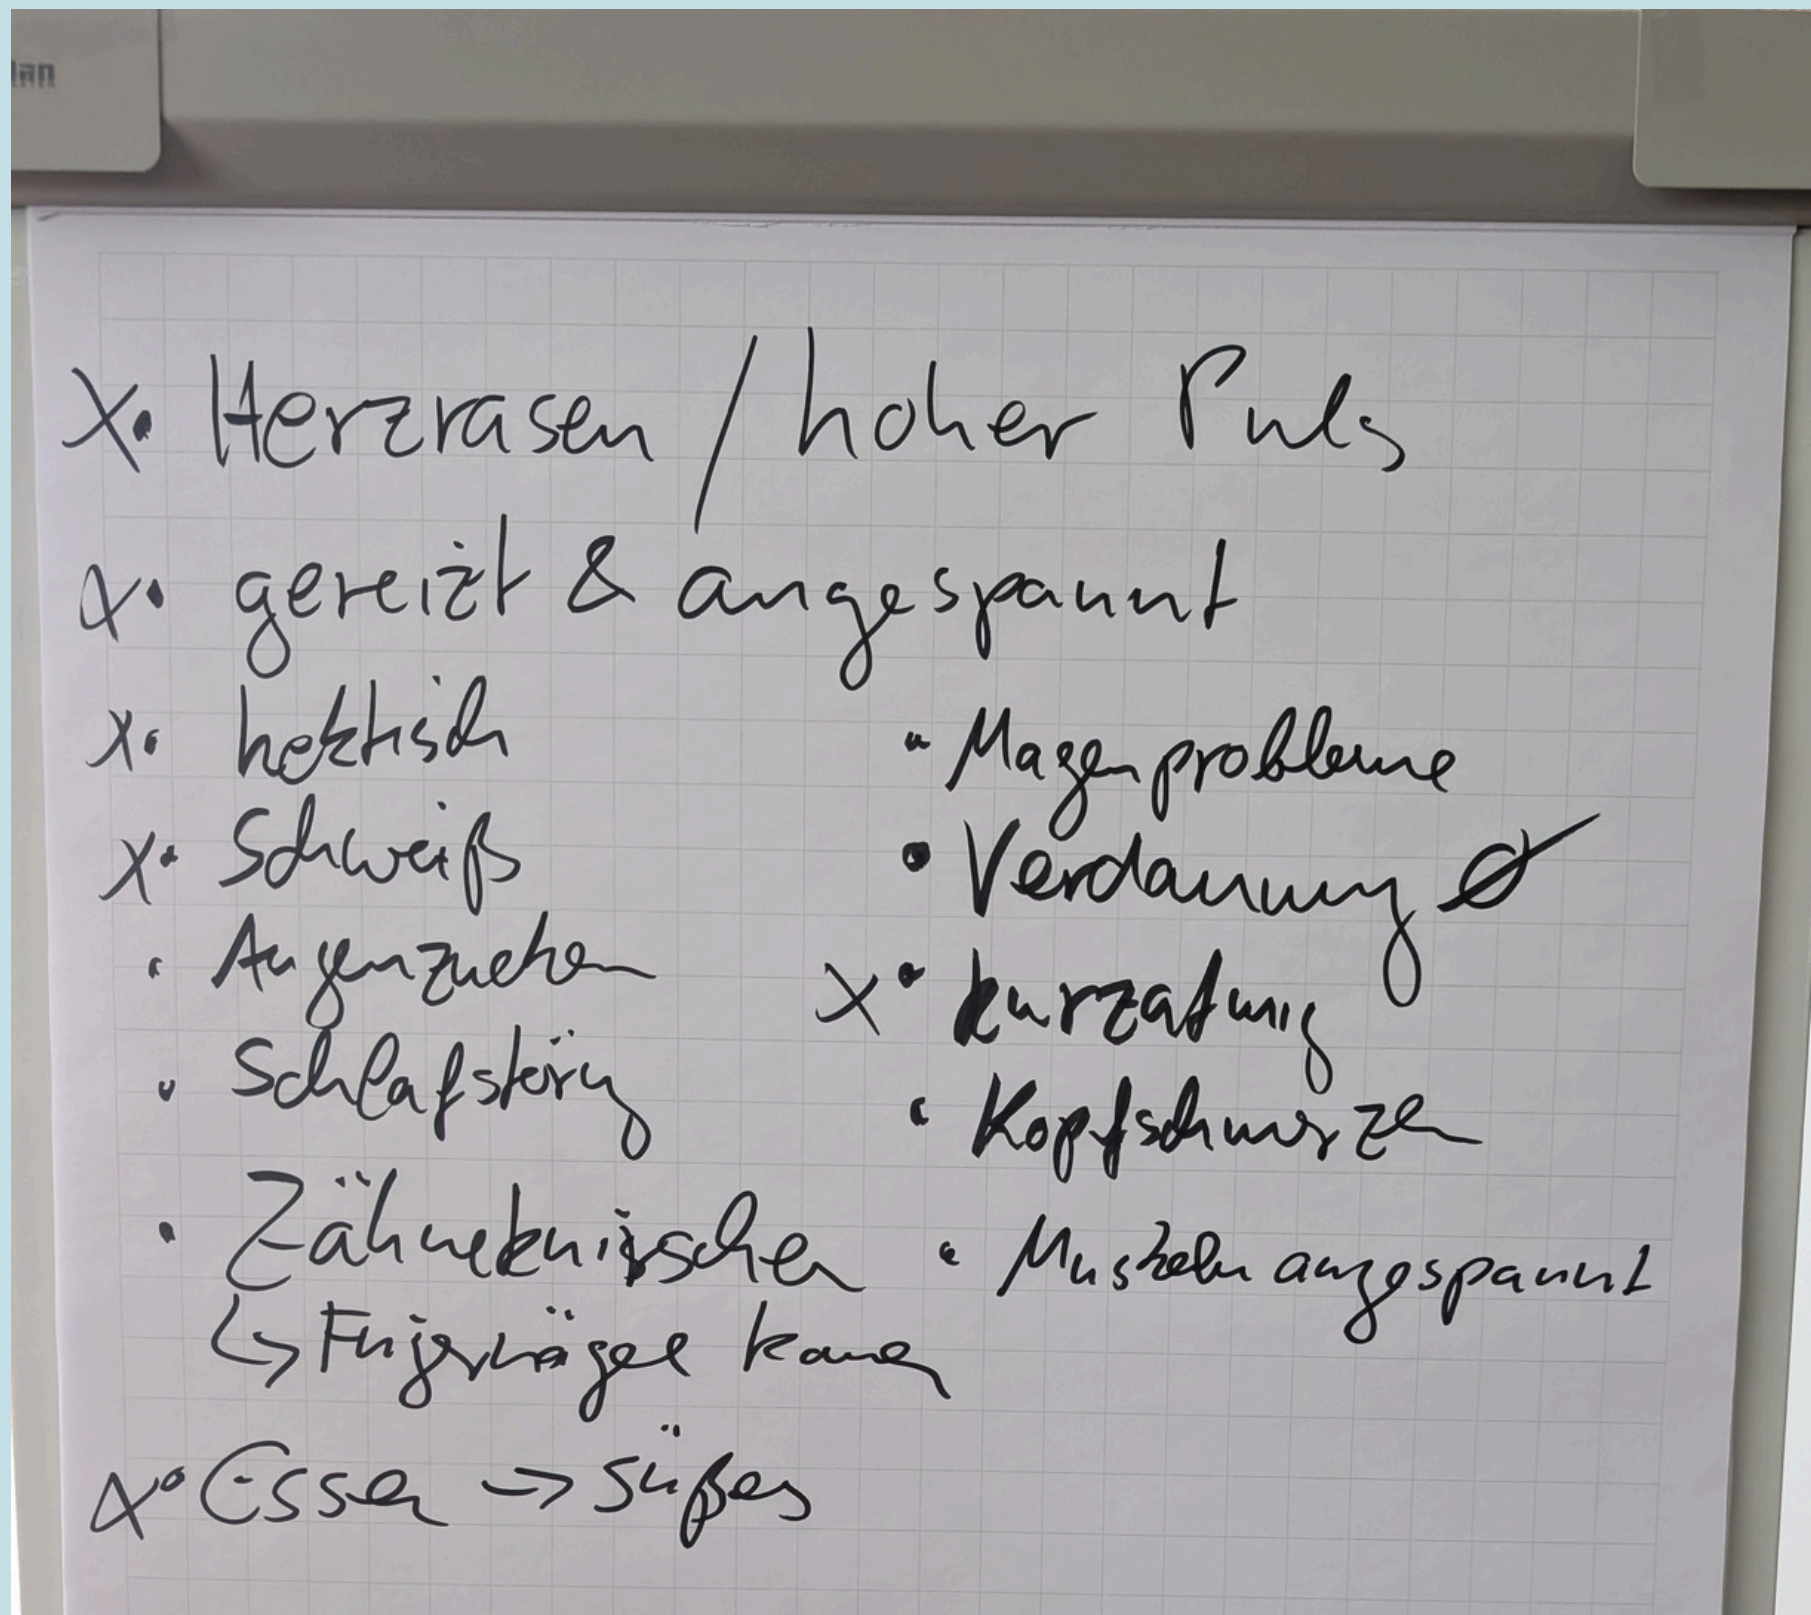 lan
X • Herzrasen / hoher Puls
X • gereizt & angespannt
X • hektisch
X • Schweiß
• Augenzucken
• Schlafstörg
• Zähneknirschen
↳ Fingernägel kauen
X • Essen → süßes
• Magenprobleme
• Verdauung Ø
X • kurzatmig
• Kopfschmerzen
• Muskeln angespannt